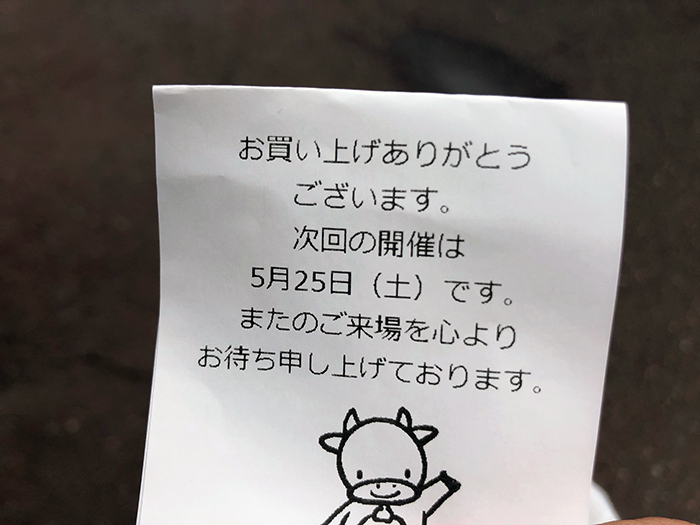 お買い上げありがとう
ございます。
次回の開催は
5月25日（土）です。
またのご来場を心より
お待ち申し上げております。